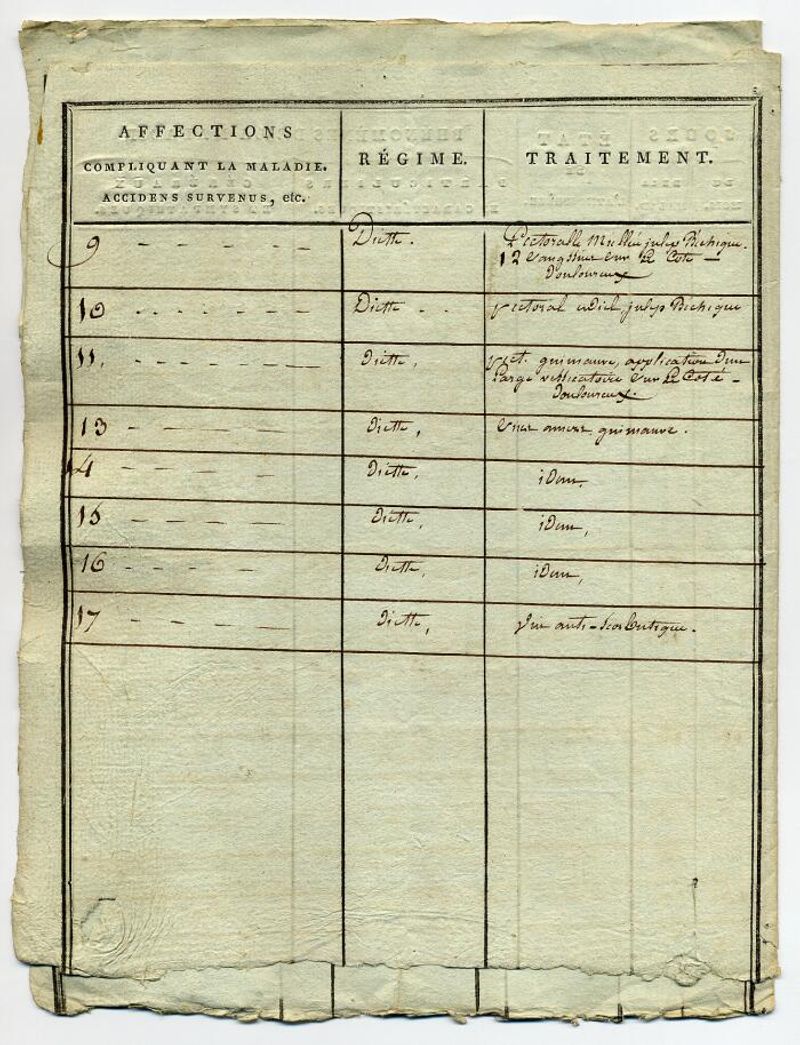 AFFECTIONS
COMPLIQUANT LA MALADIE.
ACCIDENS SURVENUS, etc.
RÉGIME.
TRAITEMENT.
9 - - - - - Diette. Pectoralle Miellée julep Béchique.
12 Sangsues sur Le Coté -
Douloureux
10 - - - - - - Diette - - pectoral julep Béchique
11, - - - - - - - Diette, guimauve, application d'un
Large vessicatoire sur Le Coté -
Douloureux.
13 - - - - - Diette, amere guimauve.
14 - - - - - Diette, idem,
15 - - - - - Diette, idem,
16 - - - - - Diette, idem,
17 - - - - - Diette, Vin anti-scorbutique.